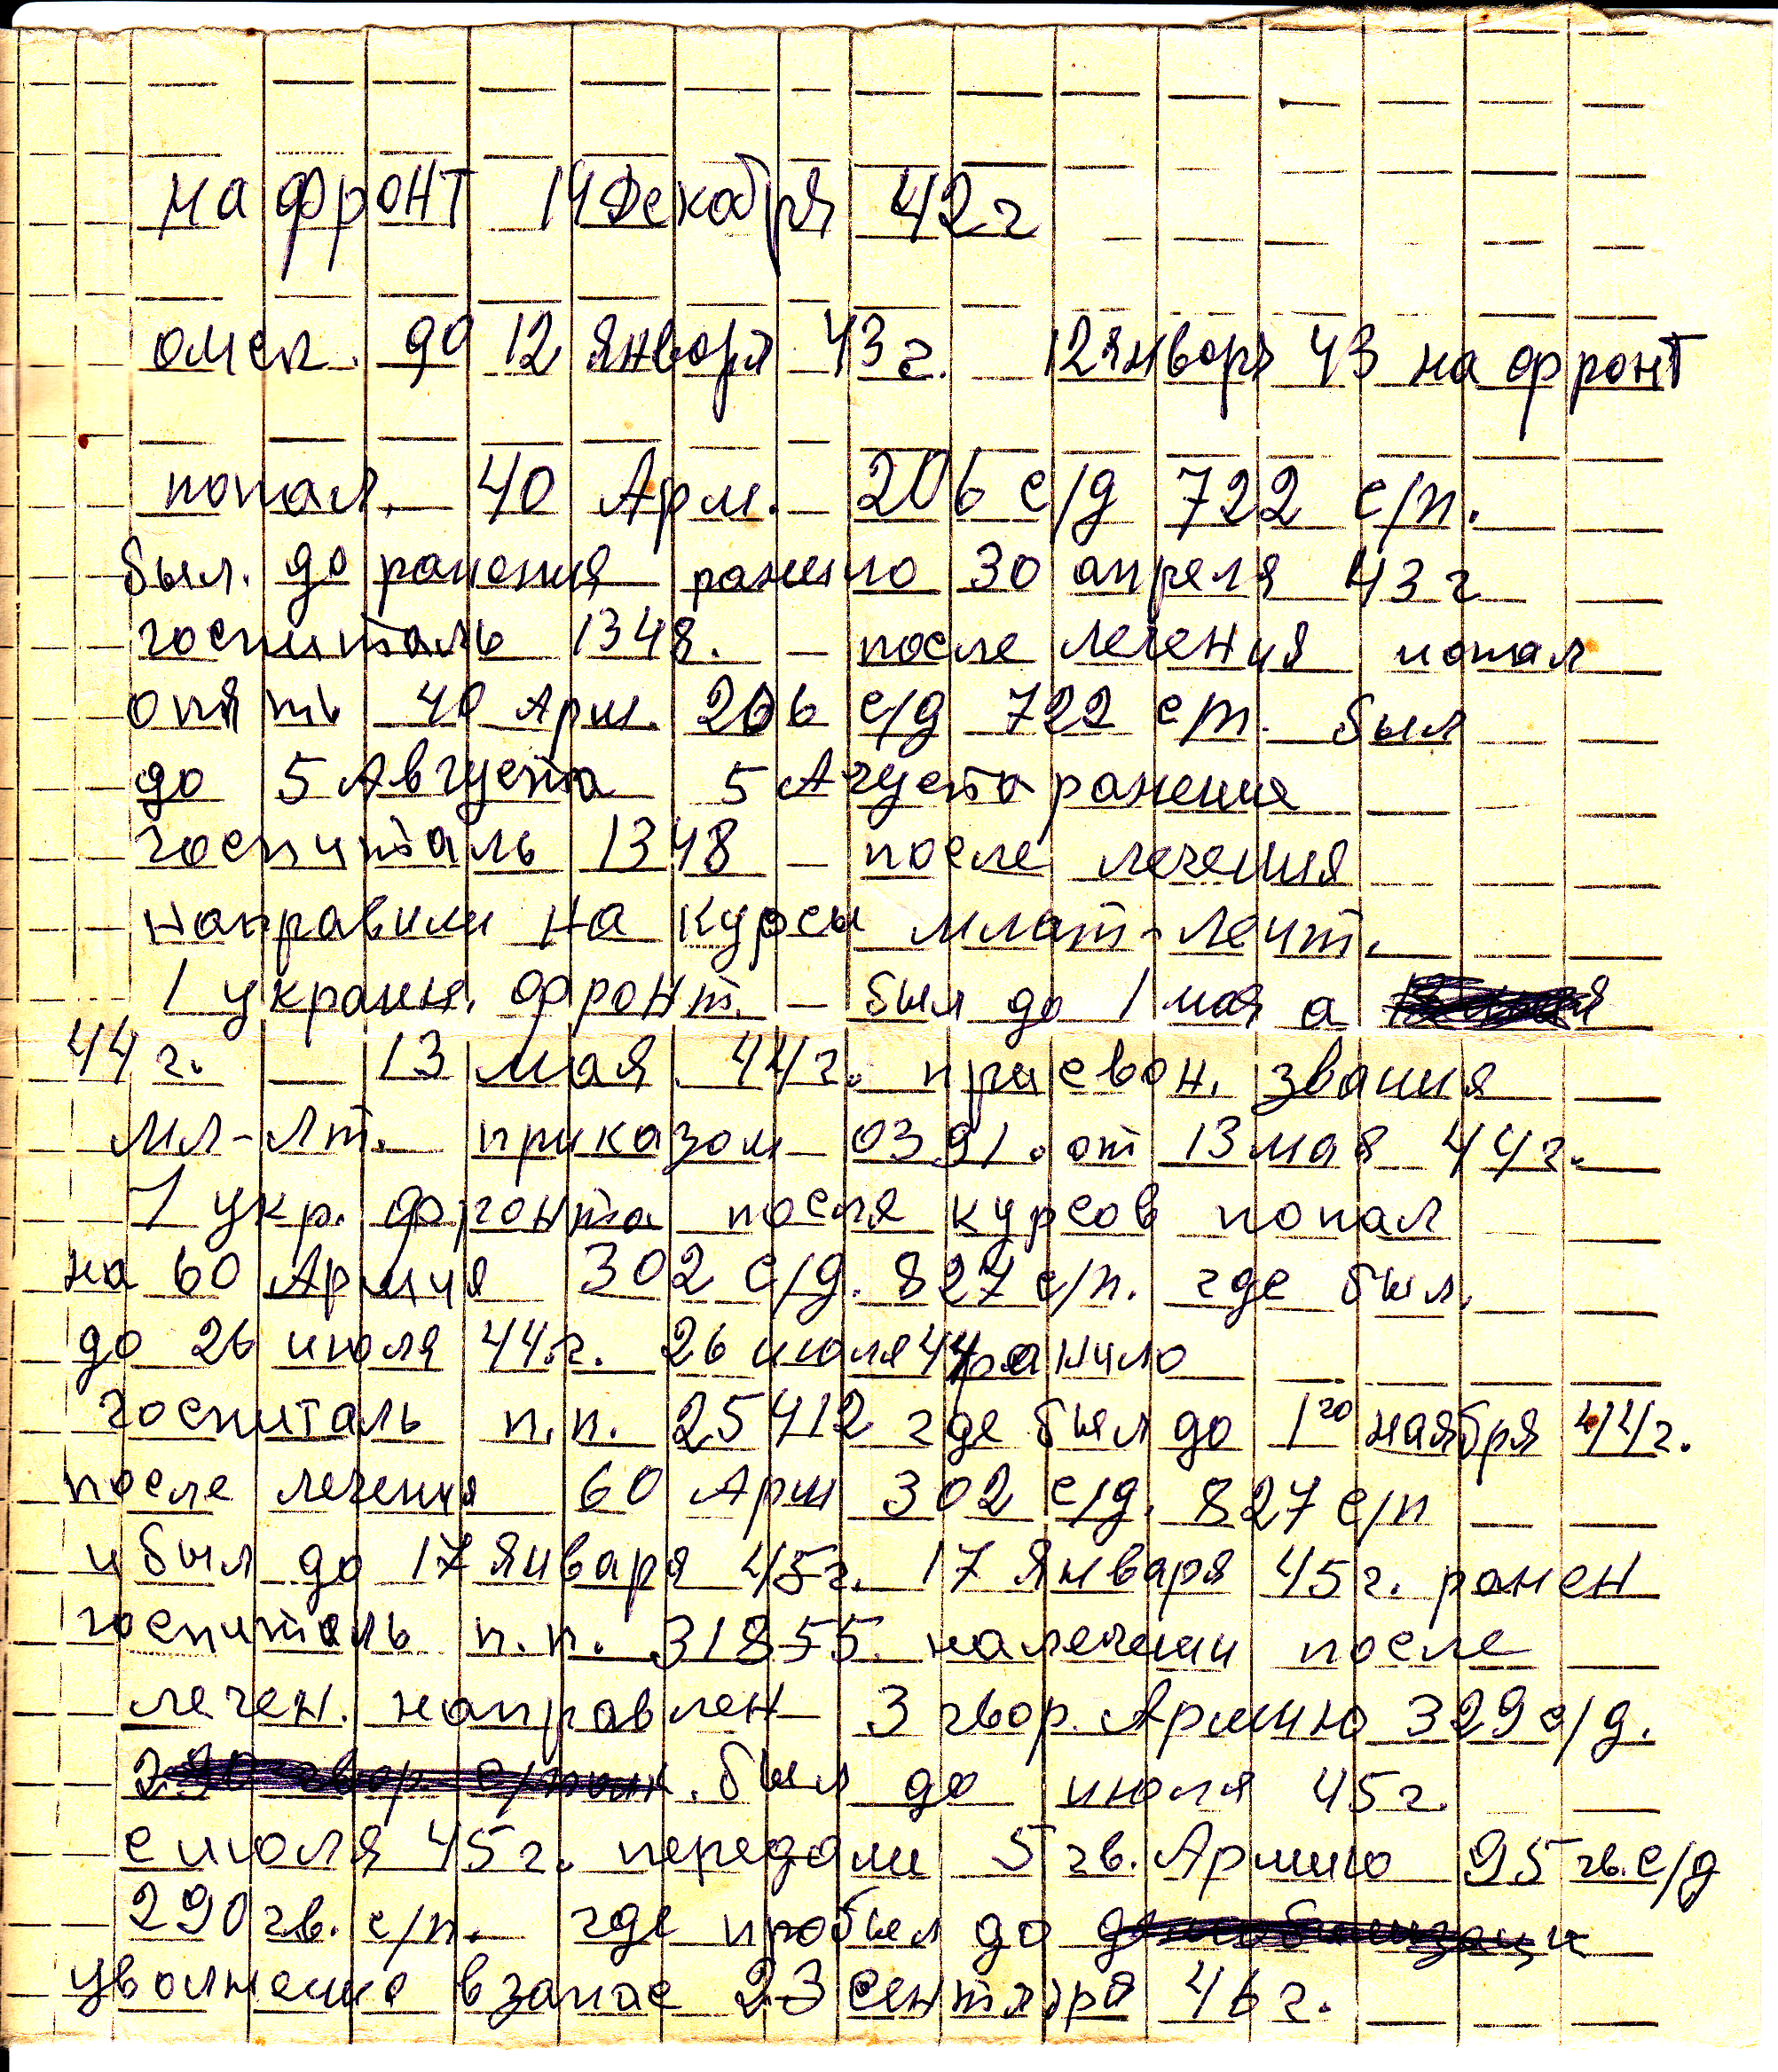 на фронт 14 Декабря 42 г
омск. до 12 Января 43 г. 12 Января 43 на фронт
попал. 40 Арм. 206 с/д 722 с/п.
был. до ранения ранило 30 апреля 43 г
госпиталь 1348. – после лечения попал
опять 40 Арм. 206 с/д 722 с/п. был
до 5 Августа 5 Агуста ранение
госпиталь 1348 – после лечения
направили на курсы млат-лейт.
1 украин. фронт. – был до 1 мая а
44 г. – 13 мая 44 г. присвон. звания
мл-лт. приказом 0391. от 13 мая 44 г.
1 укр. фронта посля курсов попал
на 60 Армия 302 с/д. 827 с/п. где был.
до 26 июля 44 г. 26 июля 44 ранило
госпиталь п.п. 25412 где был до 1го наября 44 г.
после лечения 60 Арм 302 с/д. 827 с/п
и был до 17 Января 45 г. 17 Января 45 г. ранен
госпиталь п.п. 31855. налечении после
лечен. направлен 3 гвар. Армию 329 с/д.
был до июля 45 г.
с июля 45 г. передали 5 гв. Армию 95 гв. с/д
290 гв. с/п. где пробыл до демобилизаци
уволнение взапас 23 сентября 46 г.